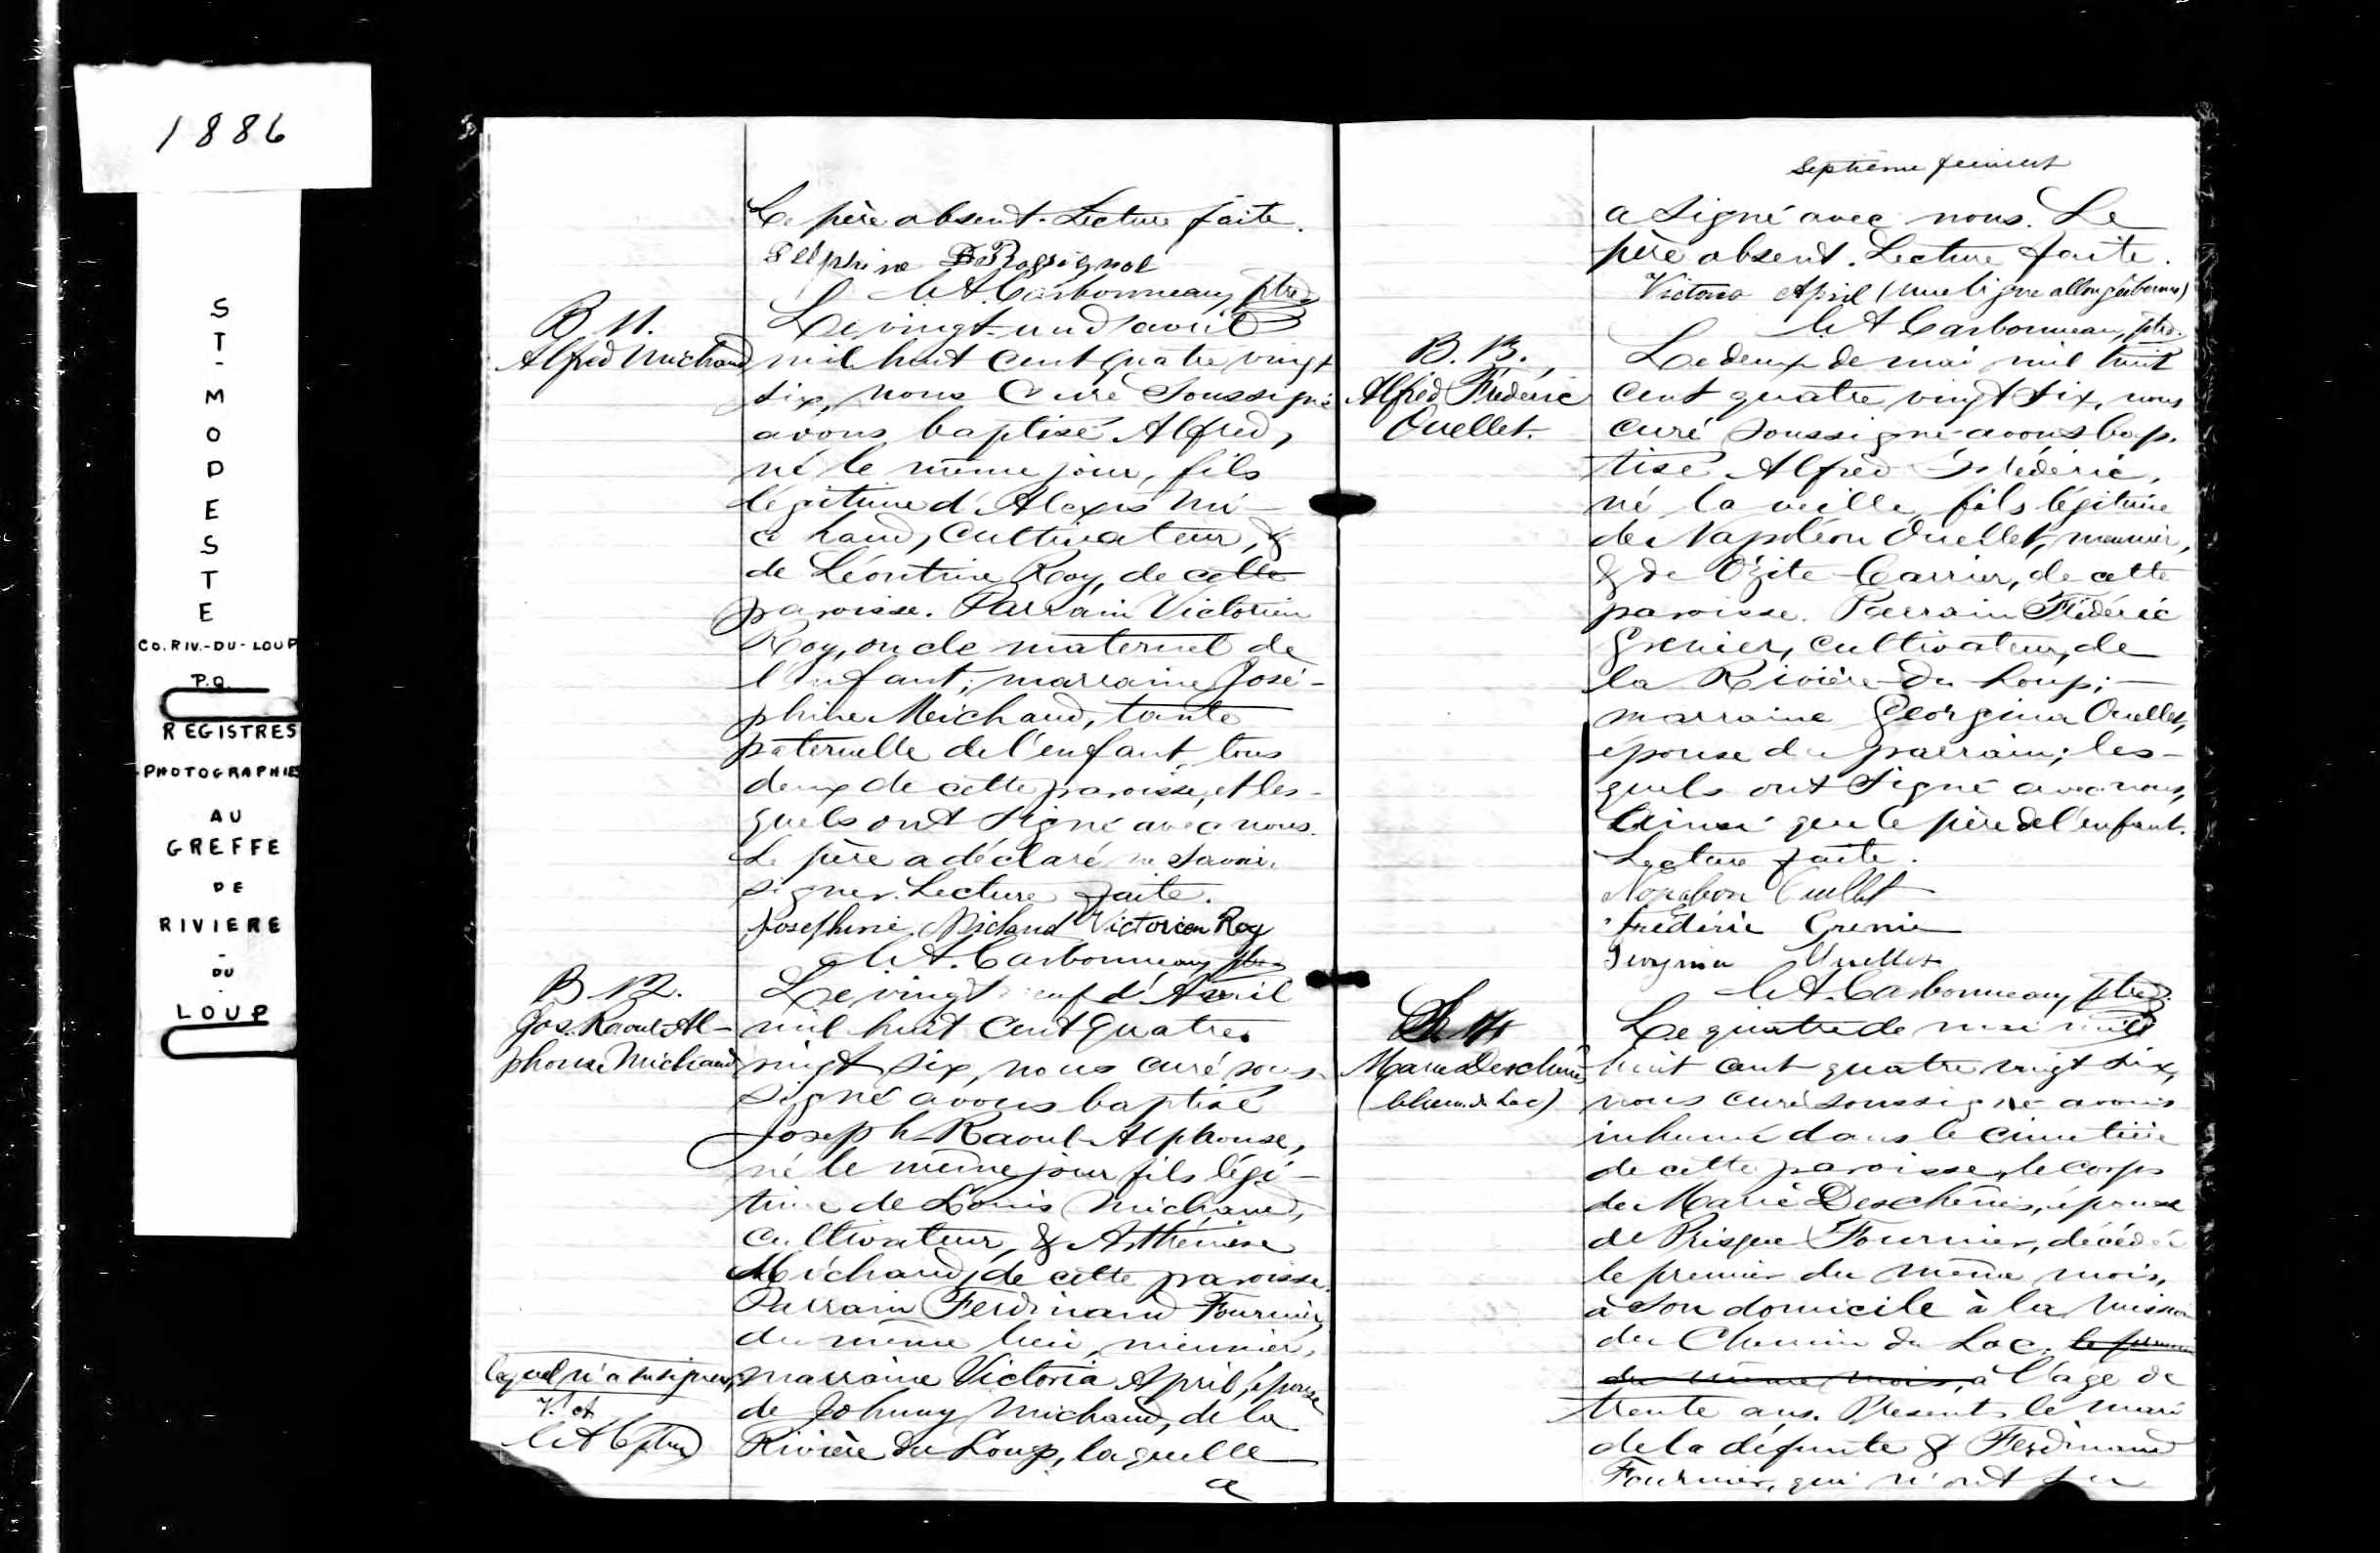 1886
ST-MODESTE
CO. RIV.-DU-LOUP
P.Q.
REGISTRES
PHOTOGRAPHIÉS
AU
GREFFE
DE
RIVIERE
-
DU
-
LOUP
Le père absent. Lecture faite.
Delphine Rossignol
Carbonneau, ptre
B 11.
Alfred Michaud
Le vingt-un d'avril
mil huit cent quatre vingt
six, nous Curé Soussigné
avons baptisé Alfred,
né le même jour, fils
légitime d'Alexis Mi-
chaud, cultivateur, &
de Léontine Roy, de cette
paroisse. Parrain Victorien
Roy, oncle maternel de
l'enfant; marraine José-
phine Michaud, tante
paternelle de l'enfant, tous
deux de cette paroisse, et les-
quels ont signé avec nous.
Le père a déclaré ne savoir
signer. Lecture faite.
Josephine Michaud Victorien Roy
A. Carbonneau ptre
B 12.
Jos. Raoul Al-
phonse Michaud
Le vingt neuf d'Avril
mil huit cent quatre
vingt six, nous curé sous-
signé avons baptisé
Joseph-Raoul-Alphonse,
né le même jour fils légi-
time de Louis Michaud,
cultivateur, & Arthémise
Michaud, de cette paroisse.
Parrain Ferdinand Fournier,
du même lieu, meunier,
lequel n'a su signer,
marraine Victoria April, épouse
de Johnny Michaud, de la
Rivière du Loup, laquelle
a
Septième feuillet
a signé avec nous. Le
père absent. Lecture faite.
Victoria April (une ligne allongée bonne)
A Carbonneau, ptre.
B. 13.
Alfred Frédéric
Ouellet.
Le deux de mai mil huit
cent quatre vingt six, nous
curé soussigné avons bap-
tisé Alfred Frédéric,
né la veille, fils légitime
de Napoléon Ouellet, meunier,
& de Ozite Carrier, de cette
paroisse. Parrain Frédéric
Grenier, cultivateur, de
la Rivière-du-Loup;
marraine Georgina Ouellet,
épouse du parrain; les-
quels ont signé avec nous,
ainsi que le père de l'enfant.
Lecture faite.
Napoléon Ouellet
Frédéric Grenier
Georgina Ouellet
A. Carbonneau, ptre.
Marie Deschênes
(Chem. du Lac)
Le quatre de mai mil
huit cent quatre vingt six,
nous curé soussigné avons
inhumé dans le cimetière
de cette paroisse, le corps
de Marie Deschênes, épouse
de Prisque Fournier, décédée
le premier du même mois,
à son domicile à la mission
du Chemin du Lac. le premier
du même mois, à l'âge de
trente ans. Présents le mari
de la défunte & Ferdinand
Fournier, qui n'ont su